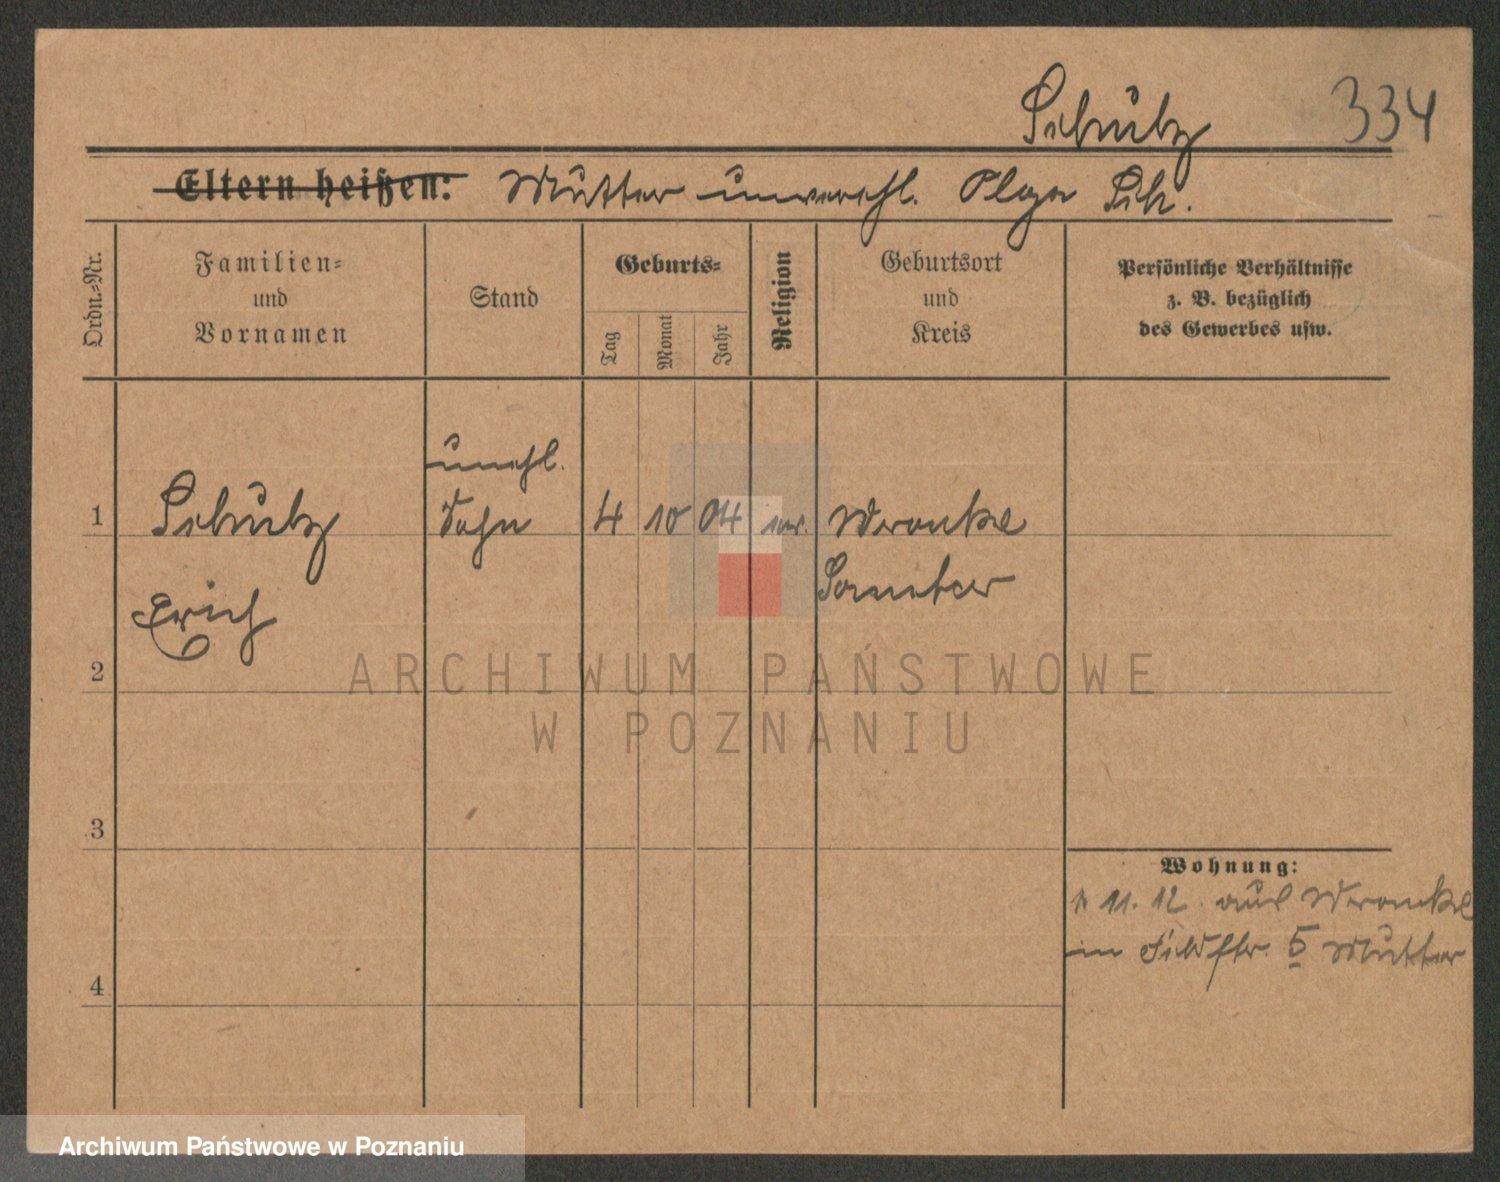 Schulz 334
Eltern heißen: Mutter unverehl. Olga Sch.
Ordn.-Nr.
Familien-
und
Vornamen
Stand
Geburts-
Tag
Monat
Jahr
Religion
Geburtsort
und
Kreis
Persönliche Verhältnisse
z. B. bezüglich
des Gewerbes usw.
unehl.
1 Schulz Sohn 4 10 04 Wronke
Samter
Erich
2
ARCHIWUM PAŃSTWOWE
W POZNANIU
3
Wohnung:
11. 12. aus Wronke
in Feldstr. 5 Mutter
4
Archiwum Państwowe w Poznaniu